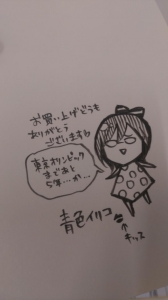 お買い上げどうも
ありがとう
ございますね
東京オリンピック
まであと
5年…か…
青色イリコ
←キッズ